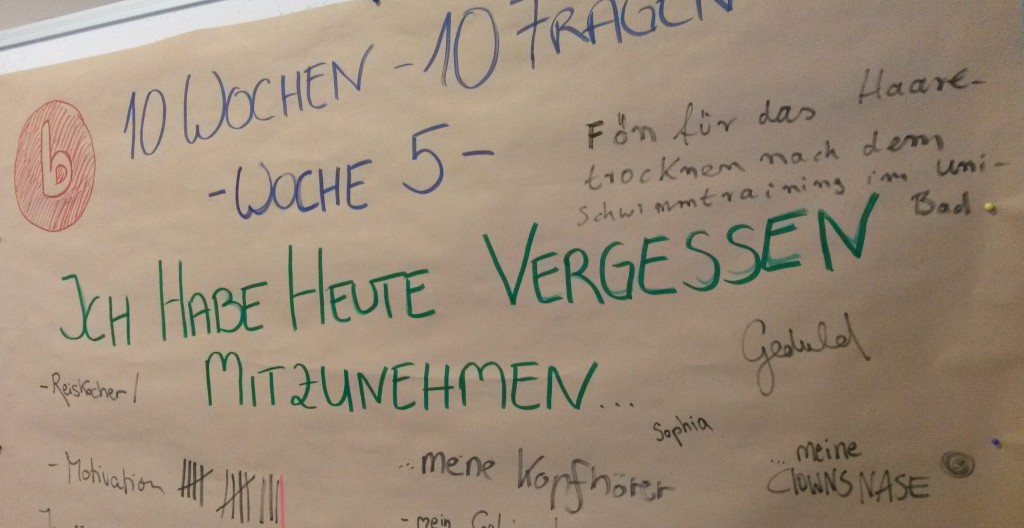 10 WOCHEN - 10 FRAGEN
b
- WOCHE 5 -
Fön für das Haare-
trocknen nach dem
Schwimmtraining im Uni-
Bad.
ICH HABE HEUTE VERGESSEN
MITZUNEHMEN...
Geduld
- Reiskocher!
Sophia
- Motivation
...mene Kopfhörer
... meine
CLOWNSNASE
- mein